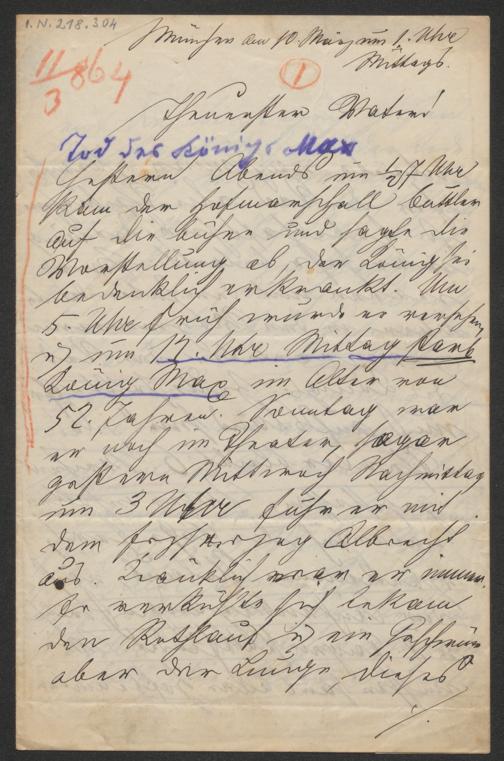 I.N. 218.304
München am 10. März um 1. Uhr
Mittags.
11/3 864
1
Theuerster Vater!
Tod des Königs Max
Gestern Abends um ½7 Uhr
kam der Hofmarschall Buttler
auf die Bühne und sagte die
Vorstellung ab, der König sei
bedenklich erkrankt. Um
5. Uhr Früh wurde er versehen
u um 12. Uhr Mittag starb
König Max im Alter von
52. Jahren. Sonntag war
er noch im Theater, sogar
gestern Mittwoch Nachmittag
um 3 Uhr fuhr er mit
dem Erzherzog Albrecht
aus. Kränklich war er immer.
Er verkühlte sich bekam
den Rothlauf u ein Geschwür
aber der Lunge dieses
./.